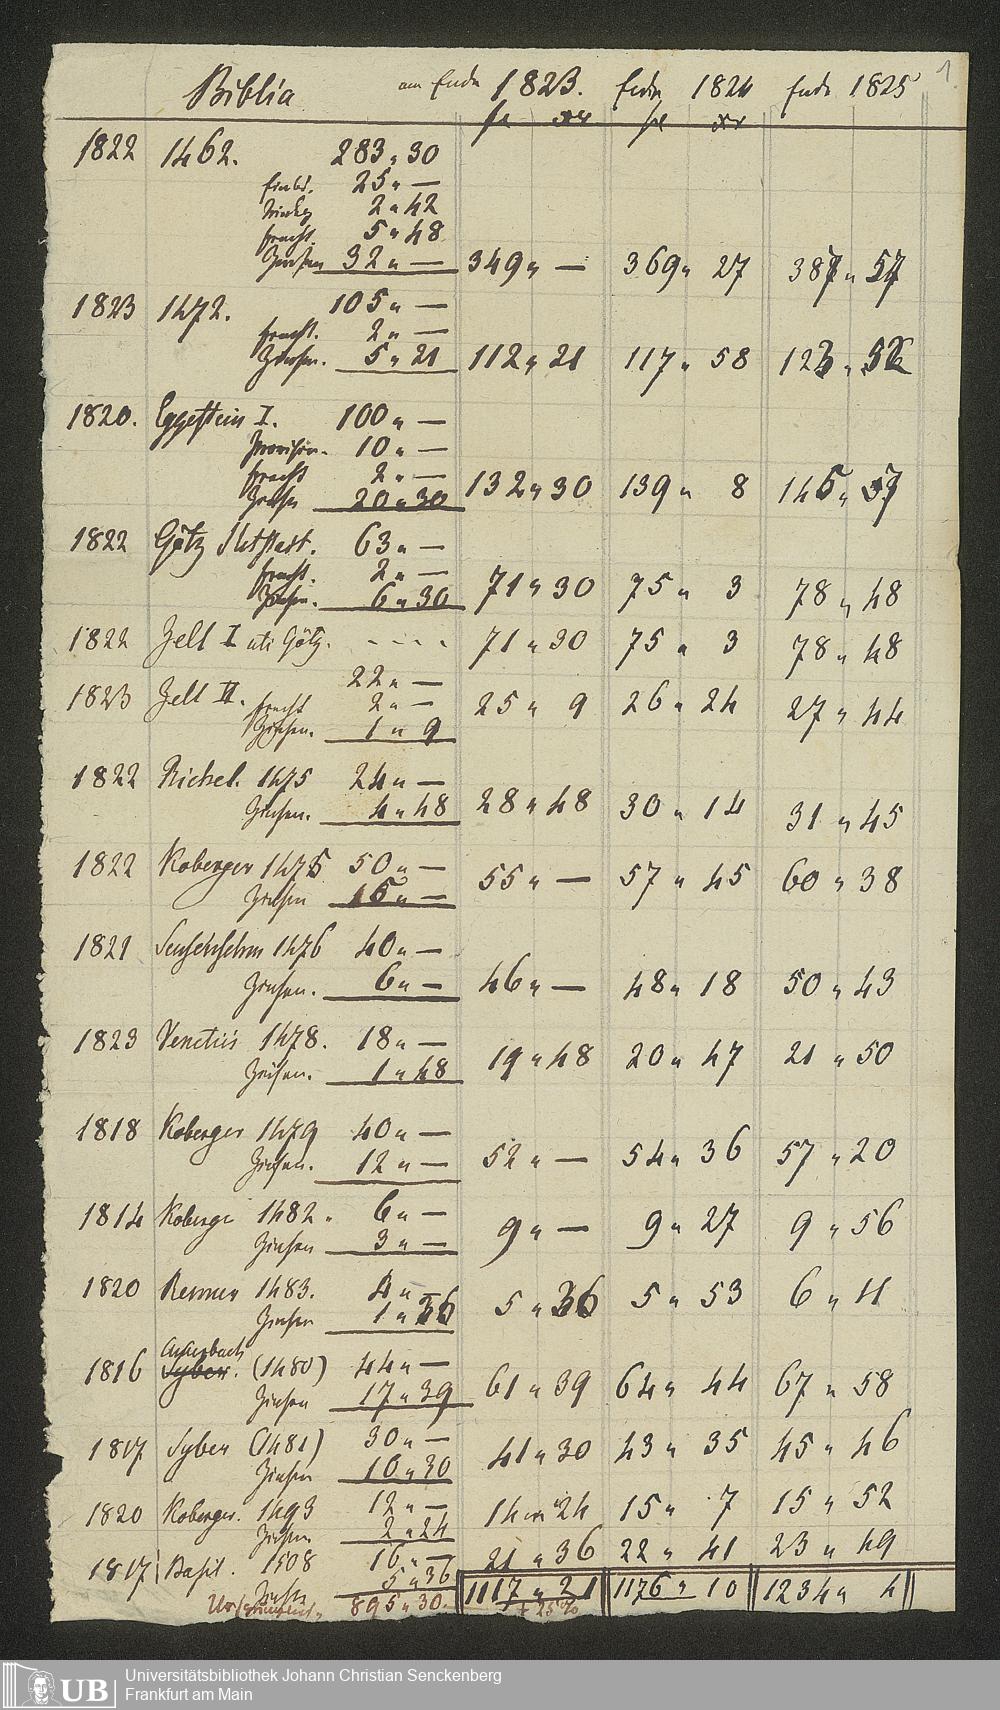 1
Biblia am Ende 1823. Ende 1824 Ende 1825
fl xr fl xr
1822 1462. 283 " 30
Einbd. 25 " —
Trinkg 2 " 42
fracht. 5 " 48
Zinsen 32 " — 349 " — 369 " 27 387 " 57
1823 1472. 105 " —
fracht. 2 " —
Zinsen. 5 " 21 112 " 21 117 " 58 123 "
1820. Eggestein I. 100 " —
Provision. 10 " —
fracht 2 " —
Zinsen 20 " 30 132 " 30 139 " 8 145 " 57
1822 Götz 63 " —
fracht. 2 " —
Zinsen. 6 " 30 71 " 30 75 " 3 78 " 48
1822 Zell I uti Götz. - - - - 71 " 30 75 " 3 78 " 48
1823 Zell II. 22 " —
fracht 2 " — 25 " 9 26 " 24 27 " 44
Zinsen. 1 " 9
1822 Richel. 1475 24 " —
Zinsen. 4 " 48 28 " 48 30 " 14 31 " 45
1822 Koberger 1475 50 " —
Zinsen 5 " — 55 " — 57 " 45 60 " 38
1821 Sensenschm 1476 40 " —
Zinsen. 6 " — 46 " — 48 " 18 50 " 43
1823 Venetiis 1478. 18 " —
Zinsen. 1 " 48 19 " 48 20 " 47 21 " 50
1818 Koberger 1479 40 " —
Zinsen. 12 " — 52 " — 54 " 36 57 " 20
1814 Koberger 1482. 6 " —
Zinsen 3 " — 9 " — 9 " 27 9 " 56
1820 Renner 1483. 4 " —
Zinsen 1 " 36 5 " 36 5 " 53 6 " 11
Amerbach
1816 Syber. (1480) 44 " —
Zinsen 17 " 39 61 " 39 64 " 44 67 " 58
1817 Syber (1481) 30 " —
Zinsen 10 " 30 41 " 30 43 " 35 45 " 46
1820 Koberger. 1493 12 " —
Zinsen 2 " 24 14 " 24 15 " 7 15 " 52
1817 Basil. 1508 16 " — 21 " 36 22 " 41 23 " 49
Zinsen 5 " 36 1117 " 21 1176 " 10 1234 " 4
895 " 30. + 25 %
Universitätsbibliothek Johann Christian Senckenberg
UB Frankfurt am Main